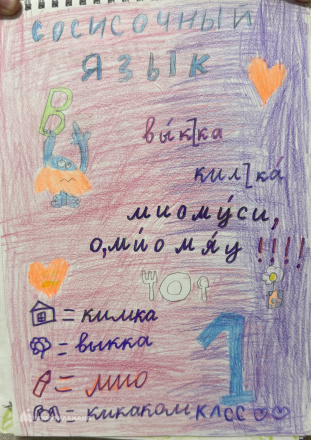 СОСИСОЧНЫЙ
ЯЗЫК
В
вы́к[ка
кил[ка́
миому́си,
о,ми́о мя́у !!!!
= кимка
= выкка
= мио
= кикаком класс
1